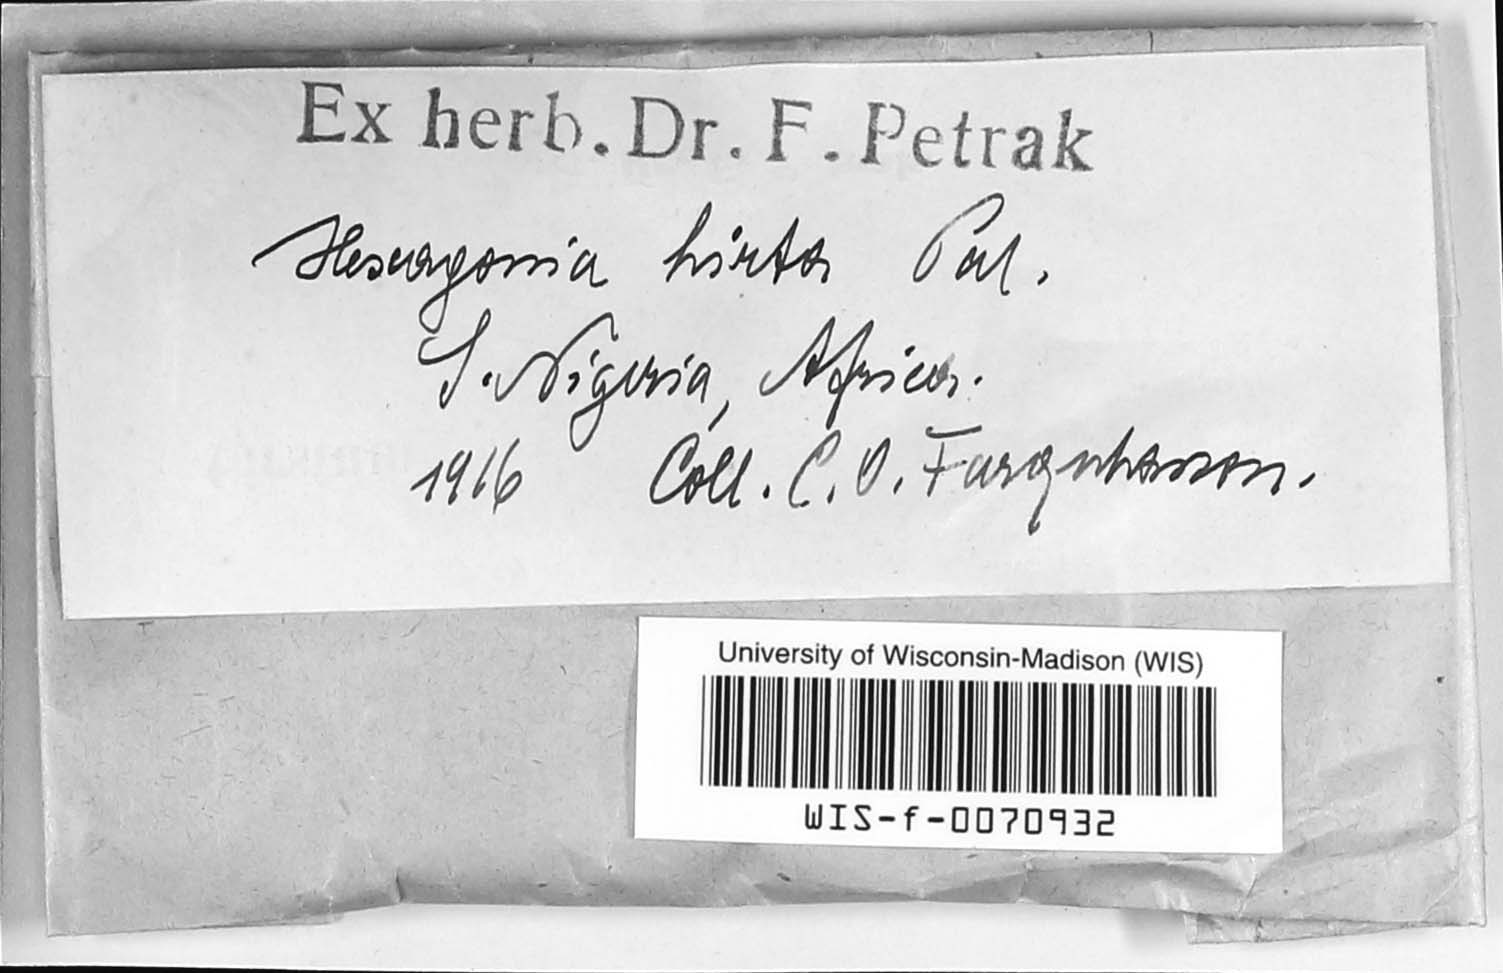 Ex herb. Dr. F. Petrak
Hexagonia hirta Pal.
S. Nigeria, Africa.
1916 Coll. C. O. Farquharson.
University of Wisconsin-Madison (WIS)
WIS-f-0070932